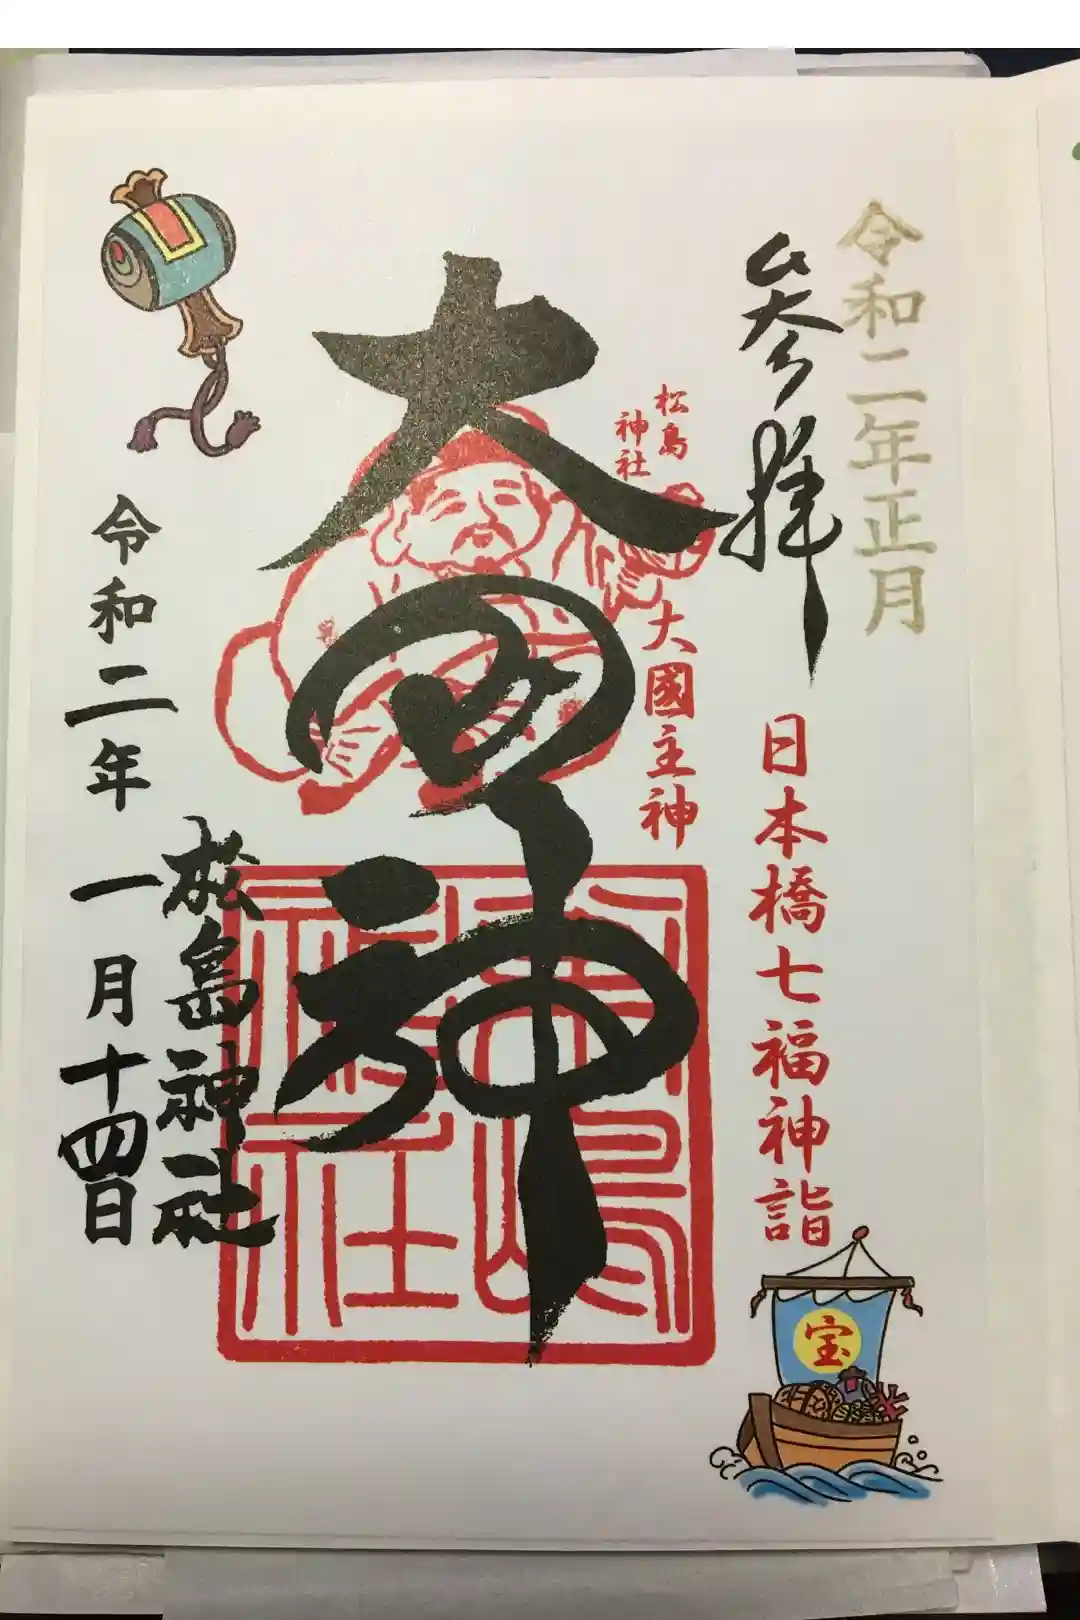 令和二年正月
参拝
日本橋七福神詣
宝
松島
神社
大國主神
大国神
松島神社
松島神社
令和二年一月十四日